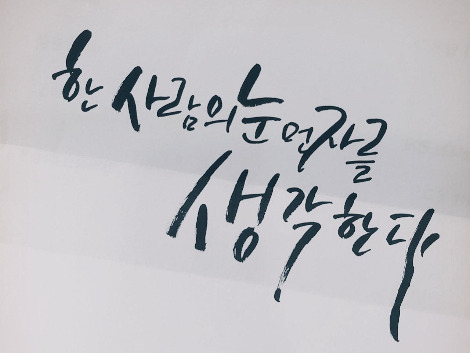 한 사람의 눈먼 자를
생각한다